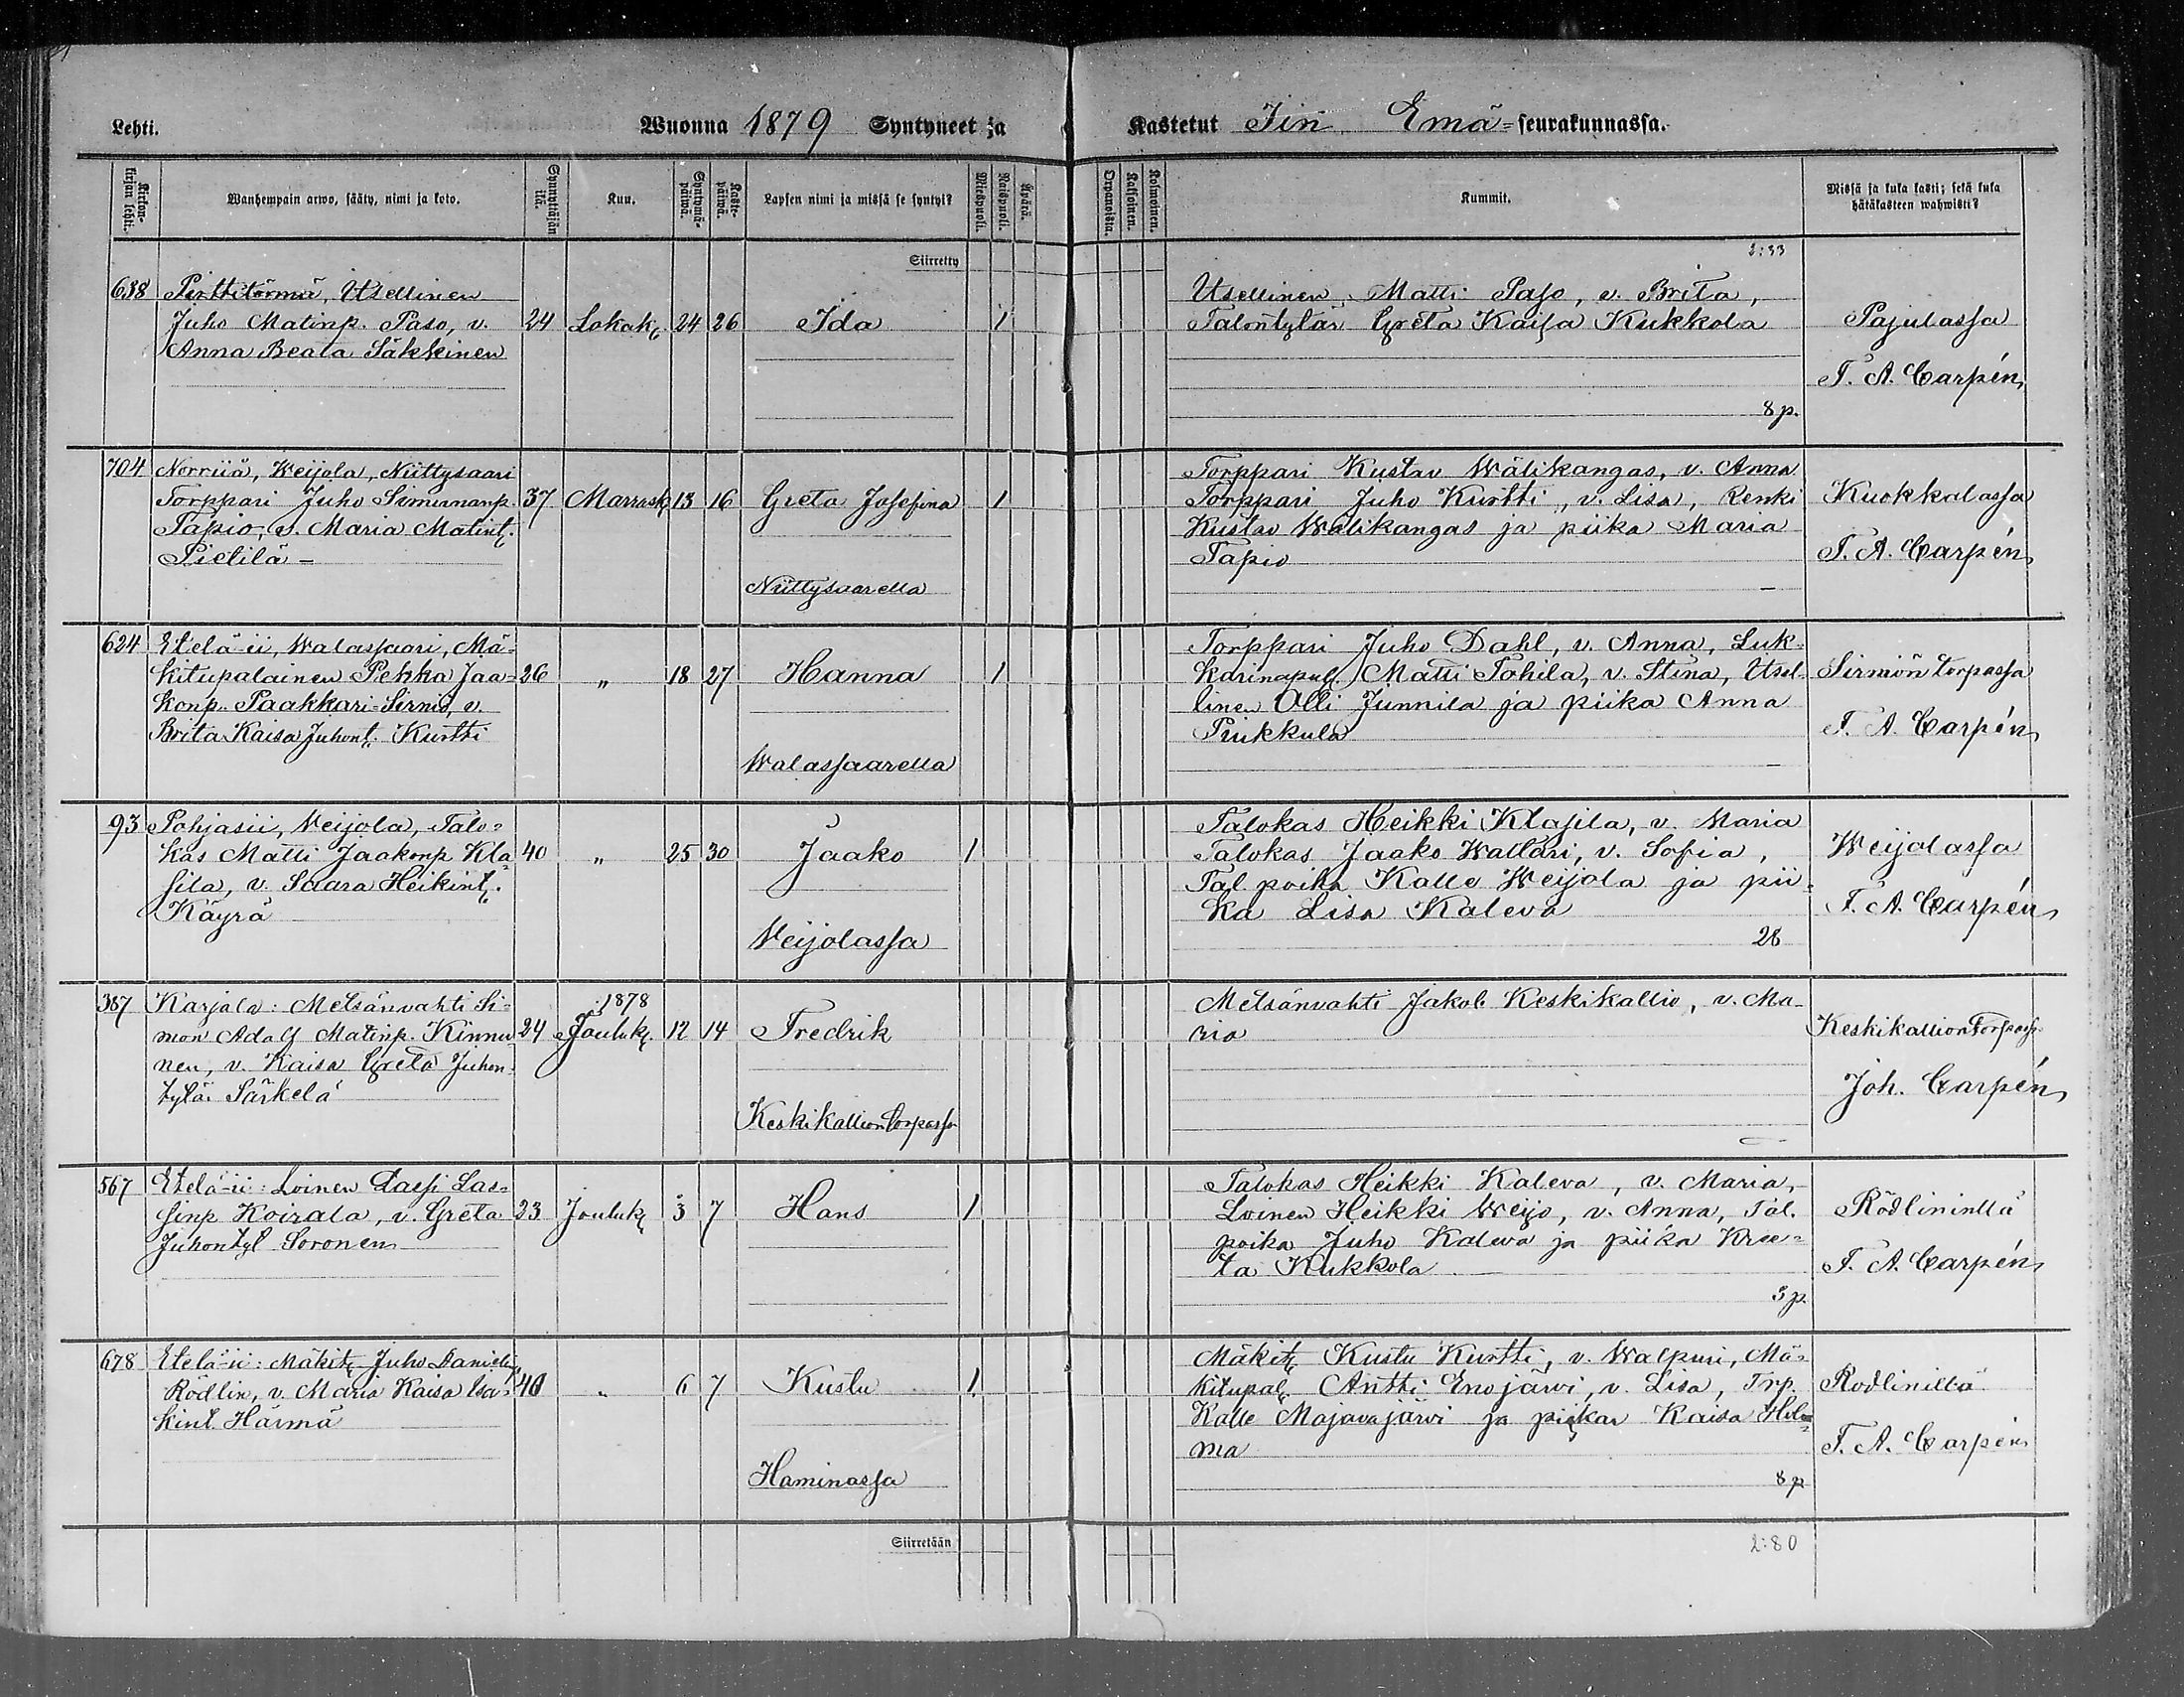 Lehti. Wuonna 1879 Syntyneet ja Kastetut Iin Emä-seurakunnassa.
Kirkon-kirjan lehti.
Wanhempain arwo, sääty, nimi ja koto.
Synnyttäjän ikä.
Kuu.
Syntymä-päiwä.
Kaste-päiwä.
Lapsen nimi ja missä se syntyi?
Miespuoli.
Naispuoli.
Äpärä.
Orpanoista.
Kaksoinen.
Kolmoinen.
Kummit.
Missä ja kuka kasti; sekä kuka hätäkasteen wahwisti?
Siirretty
2:33
638 Perttitörmä, Itsellinen
Juho Matinp. Paso, v. 24 Lokak. 24 26 Ida 1
Anna Beata Säkkinen
Itsellinen, Matti Paso, v. Brita,
Talontytär Greta Kaisa Kukkola
8 p.
Pajulassa
F. A. Carpén
704 Norriiä, Weijola, Niittysaari
Torppari Juho Simunanp. 37 Marrask. 13 16 Greta Josefina 1
Tapio, v. Maria Matint.
Pietilä –
Niittysaarella
Torppari Kustav Wälikangas, v. Anna
Torppari Juho Kurtti, v. Lisa, Renki
Kustav Wälikangas ja piika Maria
Tapio
Kuokkalassa
F. A. Carpén
624 Etelä-ii, Walassaari, Mä-
kitupalainen Pekka Jaa- 26 „ 18 27 Hanna 1
konp. Paakkari-Sirniö, v.
Brita Kaisa Juhont. Kurtti
Walassaarella
Torppari Juho Dahl, v. Anna, Luk-
karinapul. Matti Tohila, v. Stina, Itsel-
linen Olli Junnila ja piika Anna
Piukkula
Sirniön torpassa
F. A. Carpén
93 Pohjasii, Weijola, Talo-
kas Matti Jaakonp. Kla- 40 „ 25 30 Jaako 1
sila, v. Saara Heikint.
Käyrä
Weijolassa
Talokas Heikki Klasila, v. Maria
Talokas Jaako Wallari, v. Sofia,
Tal. poika Kalle Weijola ja pii-
ka Lisa Kaleva
28
Weijolassa
F. A. Carpén
387 Karjala: Metsänvahti Si-
1878
mon Adolf Matinp. Kinnu- 24 Jouluk. 12 14 Fredrik
nen, v. Kaisa Greta Juhon-
tytär Särkelä
Keskikallion torpassa
Metsänvahti Jakob Keskikallio, v. Ma-
ria
Keskikallion torpassa
Joh. Carpén
567 Etelä-ii: Loinen Lassi Las-
sinp. Koirala, v. Greta 23 Jouluk. 3 7 Hans 1
Juhontyt. Soronen
Talokas Heikki Kaleva, v. Maria,
Loinen Heikki Weijo, v. Anna, Tal.
poika Juho Kaleva ja piika Kree-
ta Kukkola
3 p.
Rödlinillä
F. A. Carpén
678 Etelä-ii: Mäkit. Juho Danielinp.
Rödlin, v. Maria Kaisa Isa- 40 „ 6 7 Kustu 1
kint. Härmä
Haminassa
Mäkit. Kustu Kurtti, v. Walpuri, Mä-
kitupal. Antti Enojärvi, v. Lisa, Trp.
Kalle Majavajärvi ja piikan Kaisa Hol-
ma
8 p
Rödlinillä
F. A. Carpén
Siirretään
2:80